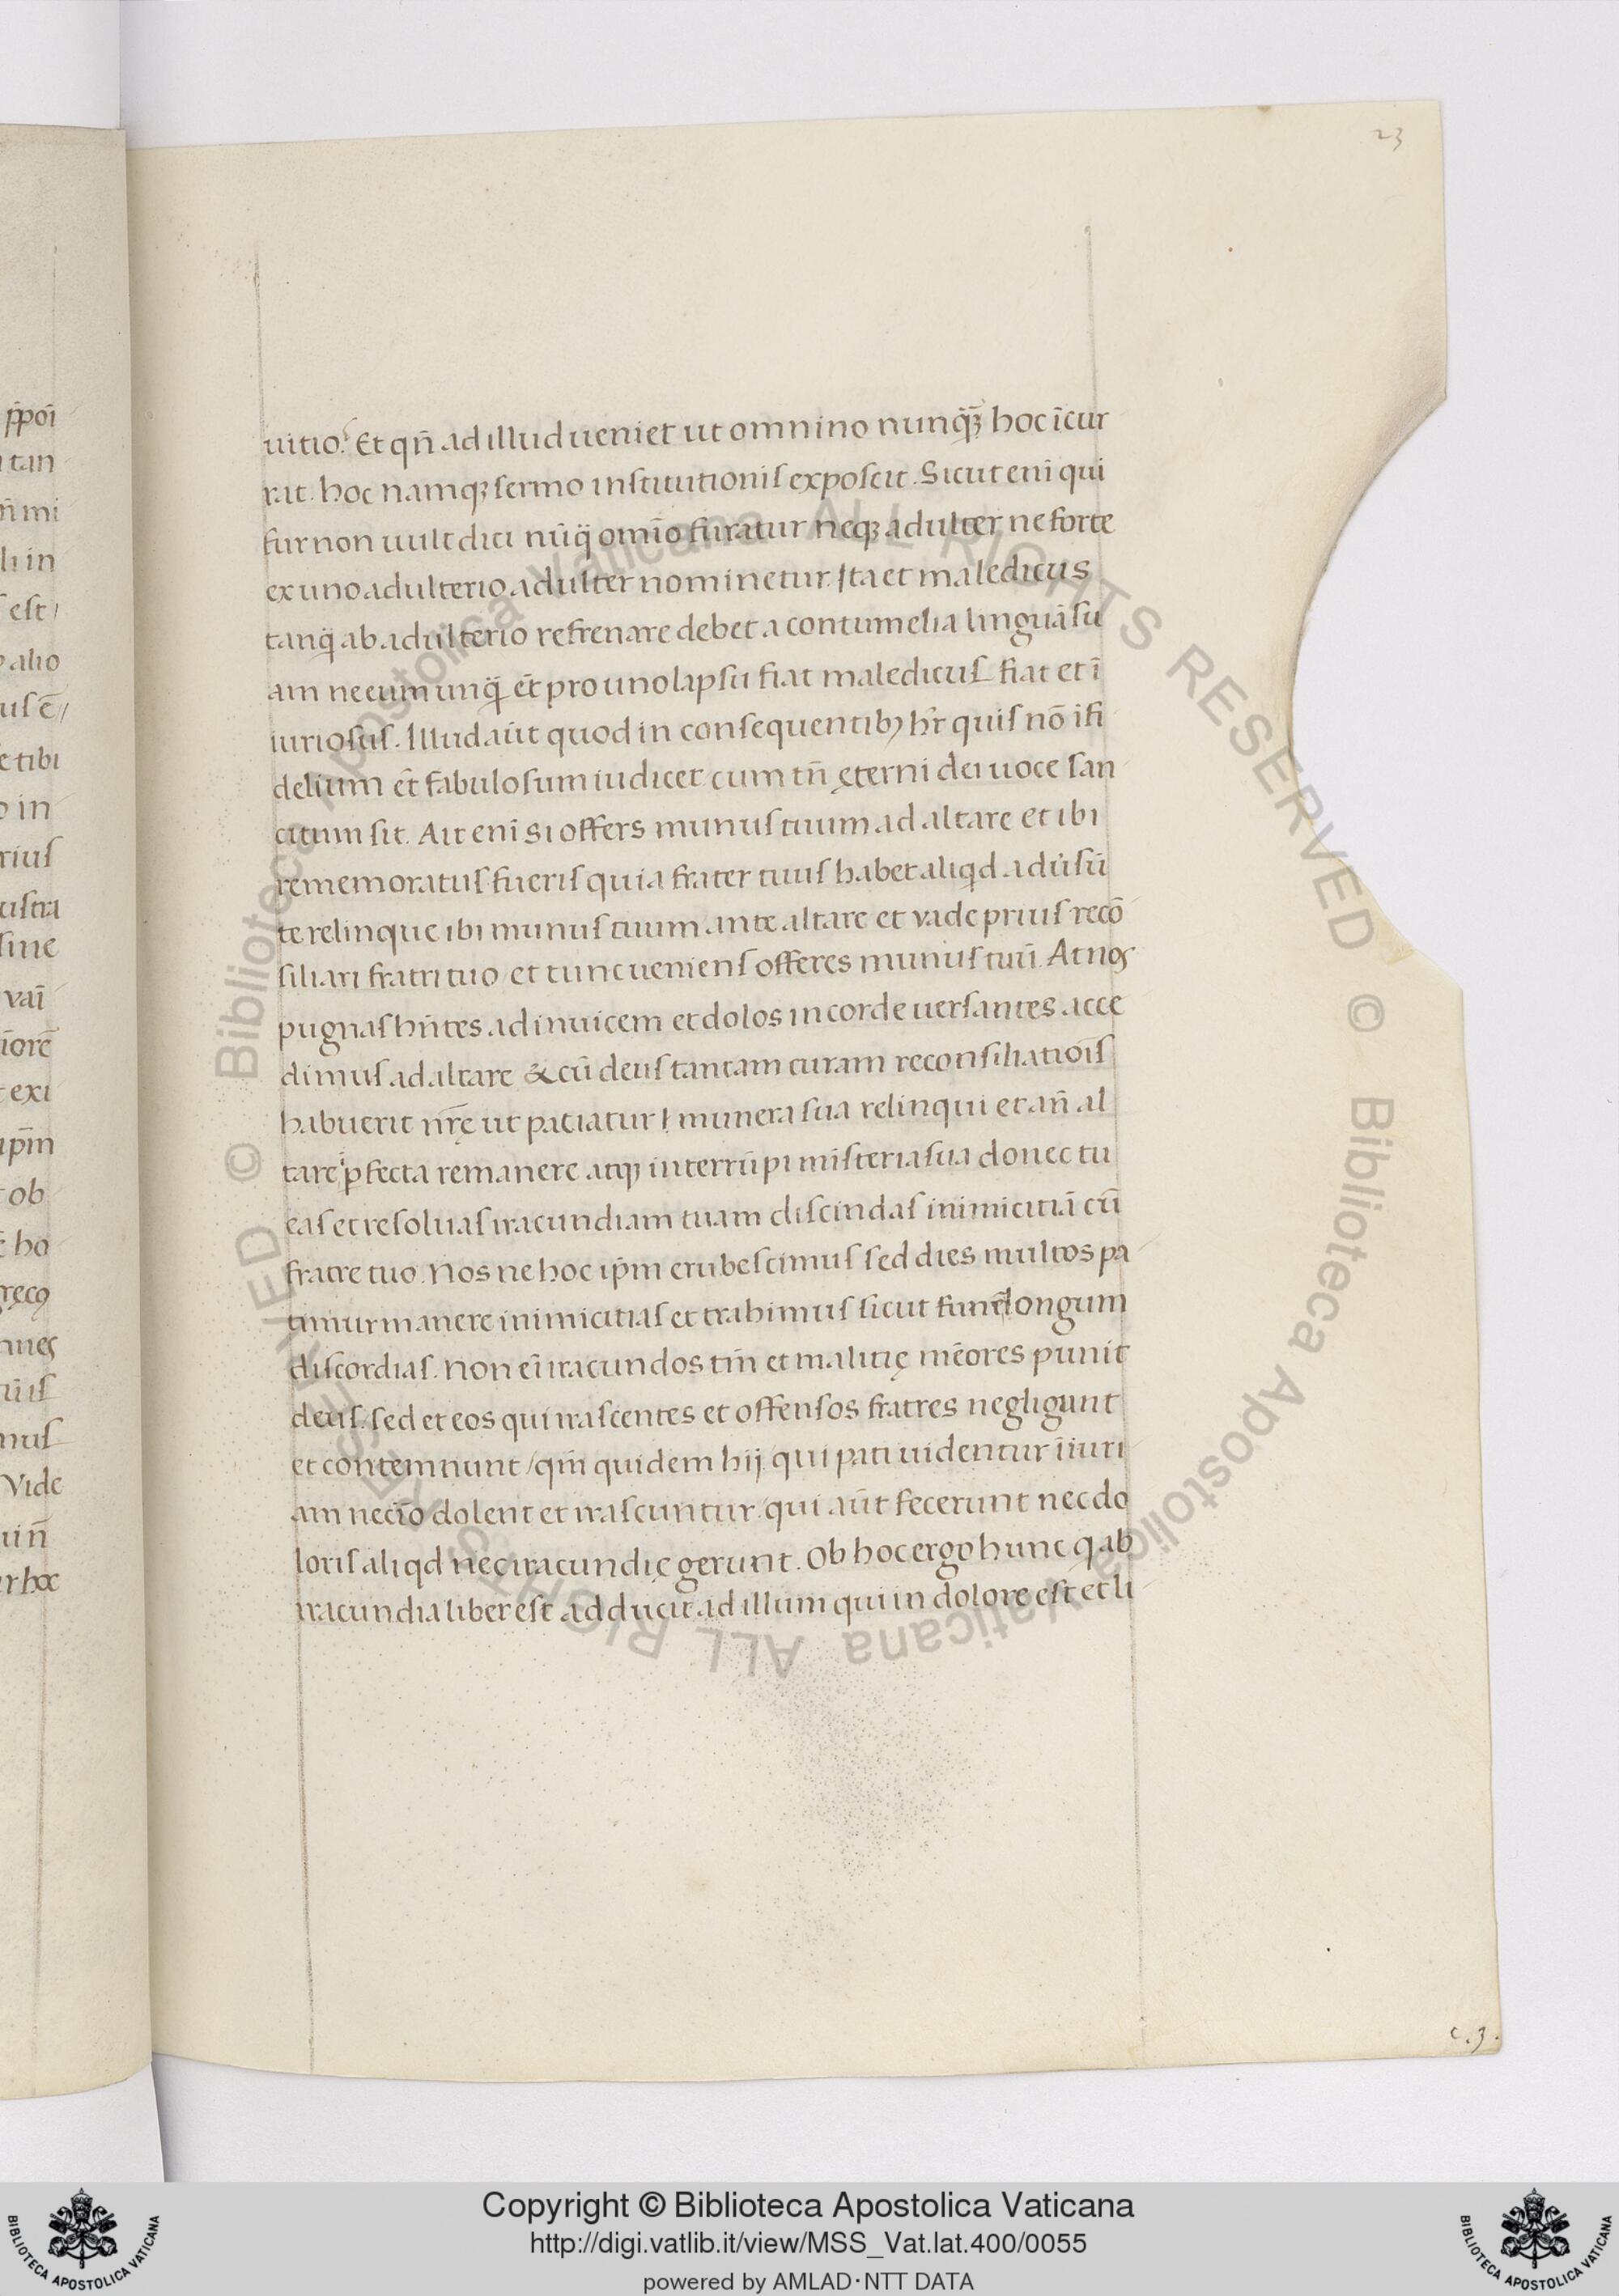 23
uitio? Et qn̄ ad illud ueniet ut omnino nunq̄ꝫ hoc īcur
rat. hoc namqꝫ sermo institutionis exposcit. Sicut eni̅ qui
fur non uult dici nūq̄ omīo furatur neqꝫ adulter ne forte
ex uno adulterio adulter nominetur. Ita et maledicus
tanq̄ ab adulterio refrenare debet a contumelia linguā su
am ne cum unq̄ et̄ pro uno lapsu fiat maledicus fiat et ī
iuriosus. Illud aūt quod in consequentibꝫ hr̄ quis nō īfi
delium et̄ fabulosum iudicet cum tn̄ ęterni dei uoce san
citum sit. Ait eni̅ si offers munus tuum ad altare et ibi
rememoratus fueris quia frater tuus habet aliqd adūsū
te relinque ibi munus tuum ante altare et vade prius recō
siliari fratri tuo / et tunc ueniens offeres munus tuū. At nos
pugnas hn̄tes ad inuicem et dolos in corde uersantes acce
dimus ad altare & cū deus tantam curam reconsiliatiōis
habuerit nr̄ę ut patiatur ł munera sua relinqui et an̄ al
tare īꝑfecta remanere atqꝫ interrūpi misteria sua donec tu
eas et resoluas iracundiam tuam discindas inimicitiā cū
fratre tuo. Nos ne hoc ip̄m erubescimus sed dies multos pa
timur manere inimicitias et trahimus sicut funē longum
discordias. Non eī iracundos tm̄ et malitię mēores punit
deus. sed et eos qui irascentes et offensos fratres negligunt
et contemnunt / qm̄ quidem hij qui pati uidentur īiuri
am necīo dolent et irascuntur / qui aūt fecerunt nec do
loris aliqd nec iracundię gerunt. Ob hoc ergo hunc q ab
iracundia liber est adducit ad illum qui in dolore est et li
c. 3.
p̄poī
tan
mi
li in
est /
alio
us ē //
tibi
in
rius
ustra
sine
vaī
īorē
exi
ip̄m
ob
ho
ręcꝰ
nnes
mus
Vide
uin̄
r hoc
© Biblioteca Apostolica Vaticana ALL RIGHTS RESERVED © Biblioteca Apostolica Vaticana ALL RIGHTS RESERVED
Copyright © Biblioteca Apostolica Vaticana
http://digi.vatlib.it/view/MSS_Vat.lat.400/0055
powered by AMLAD·NTT DATA
BIBLIOTECA APOSTOLICA VATICANA
BIBLIOTECA APOSTOLICA VATICANA